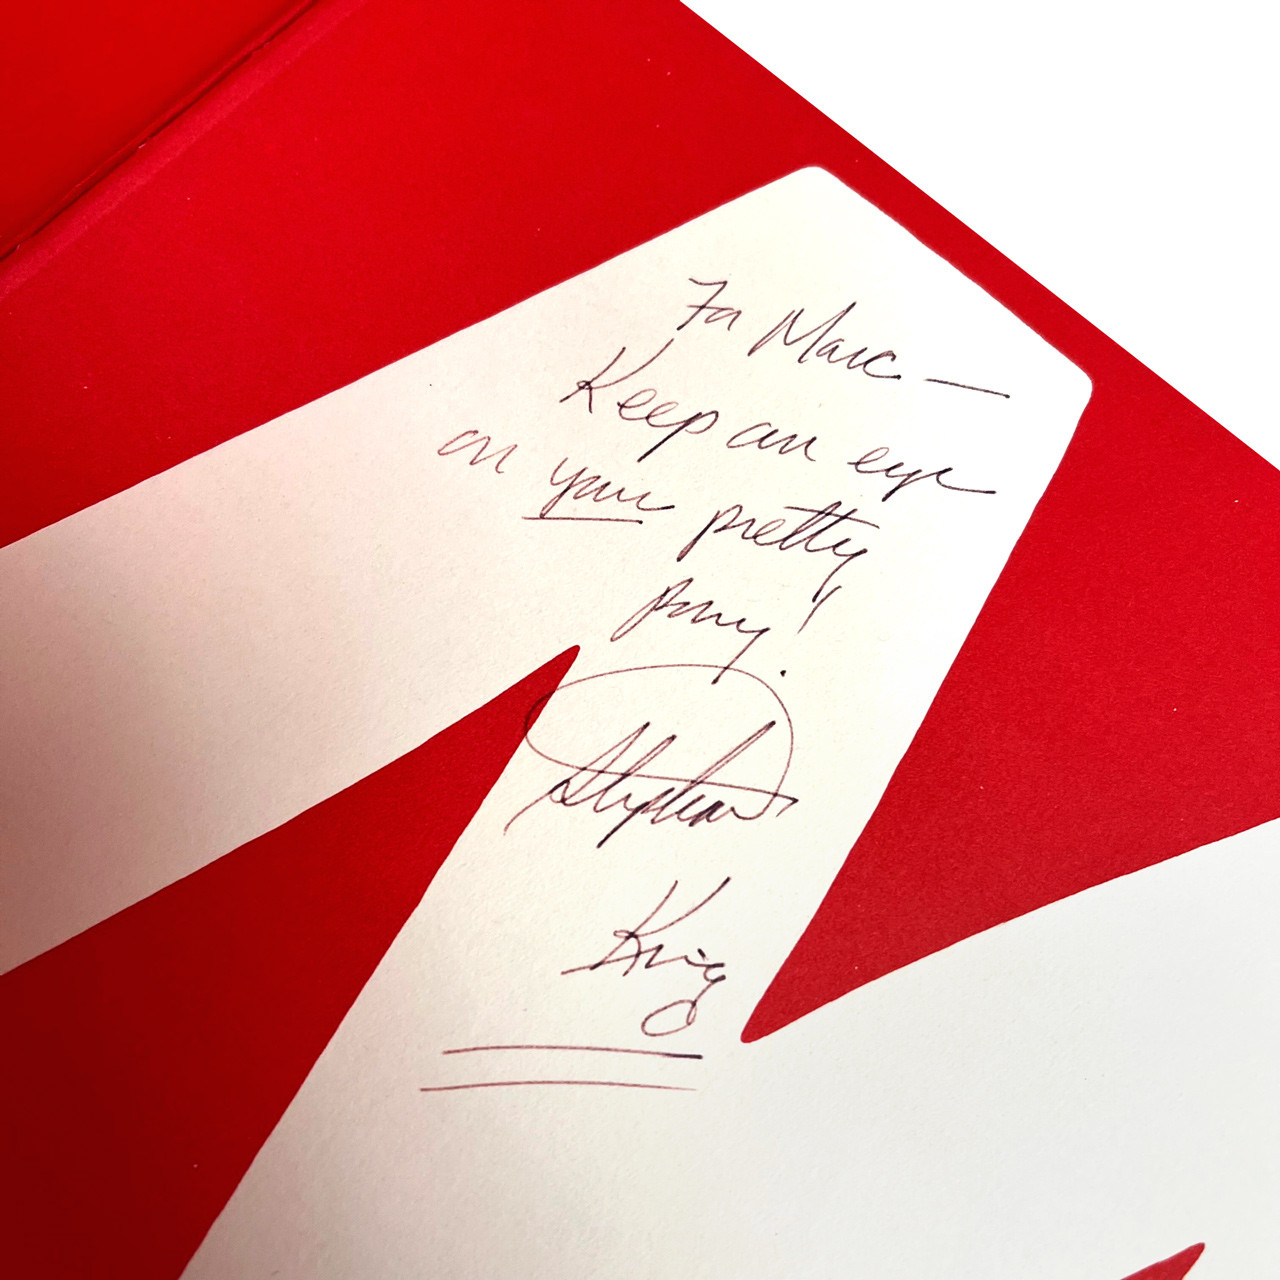 For Marc —
Keep an eye
on your pretty
pony!
Stephen
King